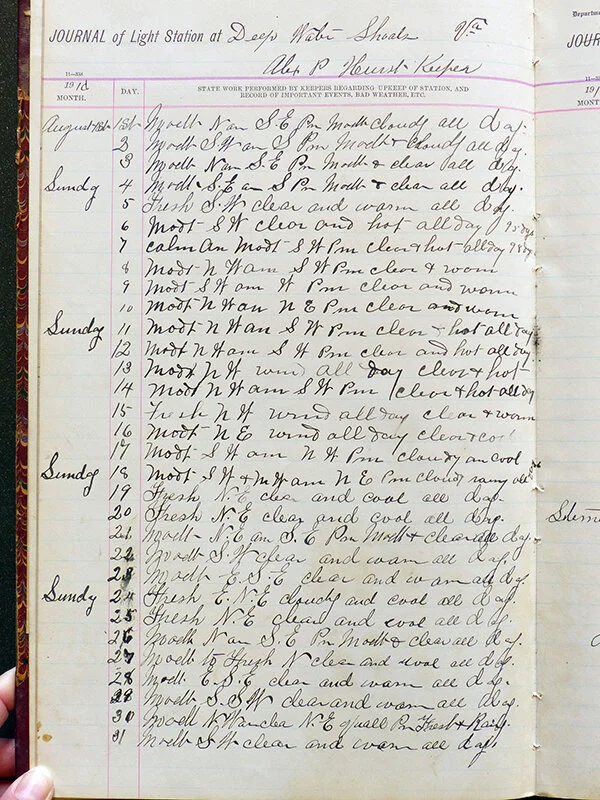 JOURNAL of Light Station at Deep Water Shoals Va
Alex P Hurst Keeper
11—358
1918
MONTH.
DAY.
STATE WORK PERFORMED BY KEEPERS REGARDING UPKEEP OF STATION, AND
RECORD OF IMPORTANT EVENTS, BAD WEATHER, ETC.
August 1st 1st Modt N am S.E Pm Modt cloudy all day.
2 Modt S W am S Pm Modt & cloudy all day.
3 Modt N am S.E Pm Modt & clear all day.
Sundy 4 Modt S.E am S Pm Modt & clear all day.
5 Fresh S.W clear and warm all day.
6 Modt S W clear and hot all day 95
7 calm am Modt S W Pm clear & hot all day 98
8 Modt N W am S W Pm clear & warm
9 Modt S W am W Pm clear and warm
10 Modt N W am N E Pm clear and warm
Sunday 11 Modt N W am S W Pm clear & hot all day
12 Modt N W am S W Pm clear and hot all day
13 Modt N W wind all day clear & hot
14 Modt N W am S W Pm clear & hot all day
15 Fresh N W wind all day clear & warm
16 Modt N E wind all day clear & cool
17 Modt S W am N W Pm cloudy an cool
Sundy 18 Modt S W & N W am N E Pm cloudy rainy all
19 Fresh N.E clear and cool all day.
20 Fresh N.E clear and cool all day.
21 Modt N.E am S.E Pm Modt & clear all day.
22 Modt S.W clear and warm all day.
23 Modt E.S.E clear and warm all day.
24 Fresh E.N.E cloudy and cool all day.
Sundy 25 Fresh N.E clear and cool all day.
26 Modt N am S.E Pm Modt & clear all day.
27 Modt to Fresh N clear and cool all day.
28 Modt E.S.E clear and warm all day.
29 Modt S.S.W clear and warm all day.
30 Modt N W am clear N.E Pm Fresh & Rainy.
31 Modt S W clear and warm all day.
Department
JOUR
11—358
19
MONTH